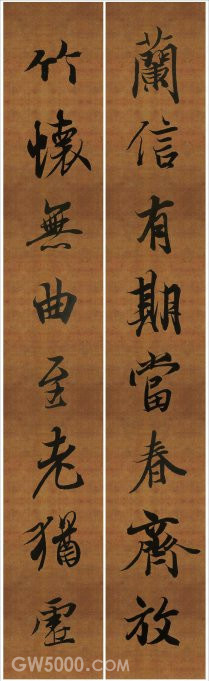 蘭信有期當春齊放
竹懷無曲至老猶虛
GW5000.COM